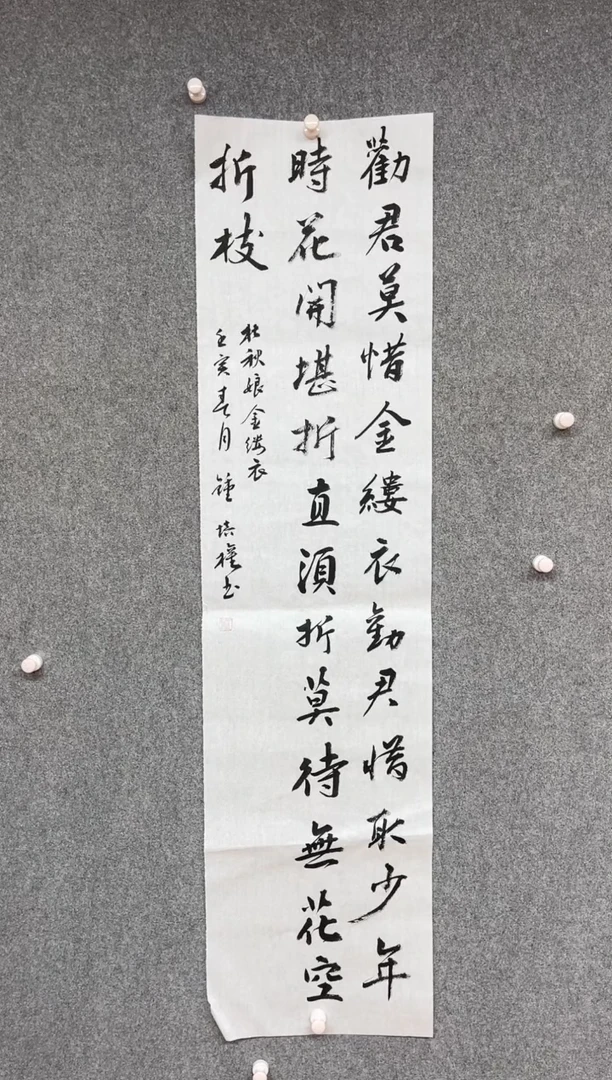 勸君莫惜金縷衣勸君惜取少年
時花開堪折直須折莫待無花空
折枝
杜秋娘金縷衣
壬寅春月鍾培權書